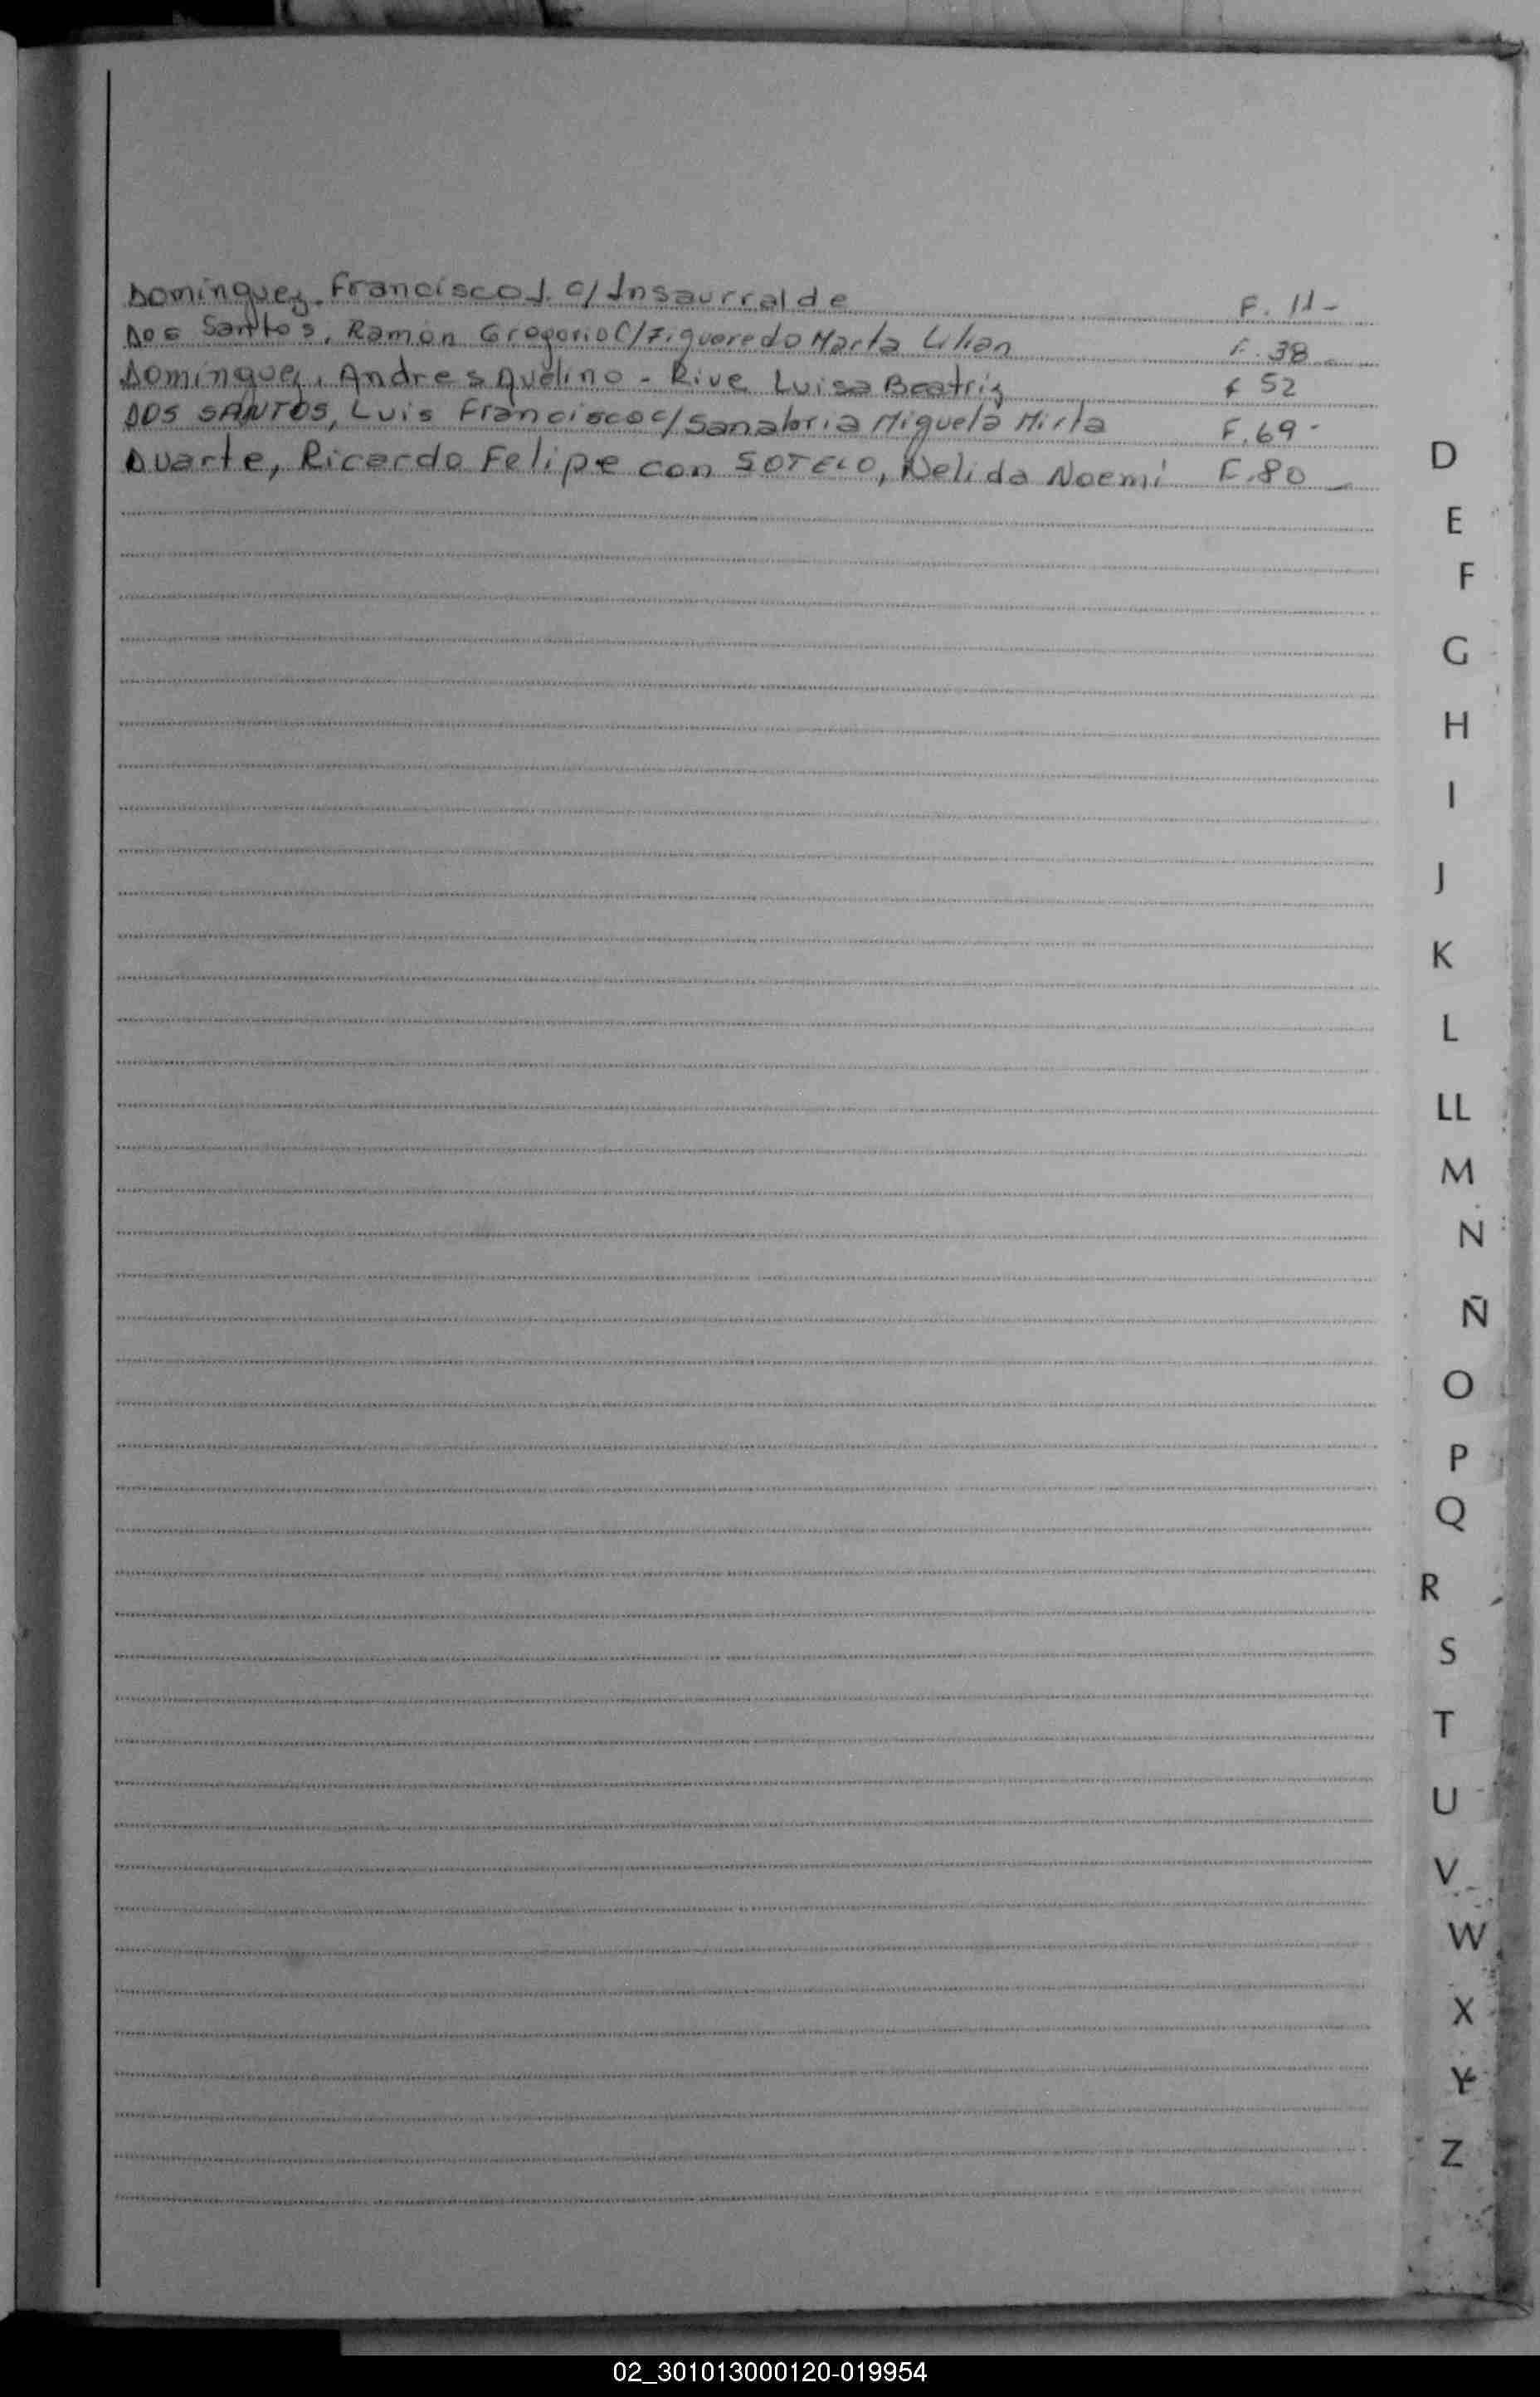 Dominguez. Francisco J. c/ Insaurralde F. 11-
Dos Santos, Ramón Gregorio C/ Figueredo Marta Lilian F. 38
Dominguez, Andres Avelino - Rive Luisa Beatriz F 52
DOS SANTOS, Luis Francisco c/ Sanabria Miguela Mirta F. 69-
Duarte, Ricardo Felipe con SOTELO, Nelida Noemí F. 80-
D
E
F
G
H
I
J
K
L
LL
M
N
Ñ
O
P
Q
R
S
T
U
V
W
X
Y
Z
02_301013000120-019954